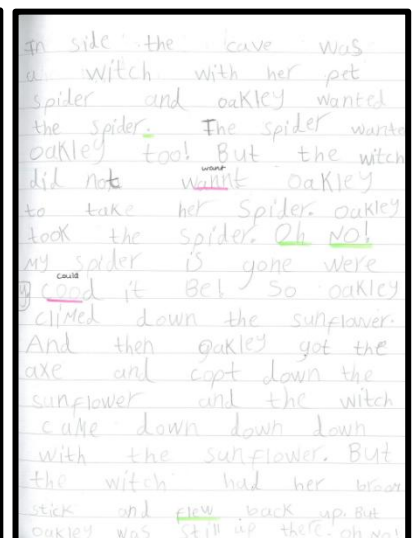 In side the cave was
a witch with her pet
spider and oakley wanted
the spider. The spider wante
oakley too! But the witch
want
did not wannt oakley
to take her spider. oakley
took the spider. Oh NO!
My spider is gone were
could
cood it Be! So oakley
climed down the sunflawer.
And then oakley got the
axe and copt down the
sunflower and the witch
came down down down
with the sunflower. But
the witch had her broom
stick and flew back up. But
oakley was still up there. oh no!